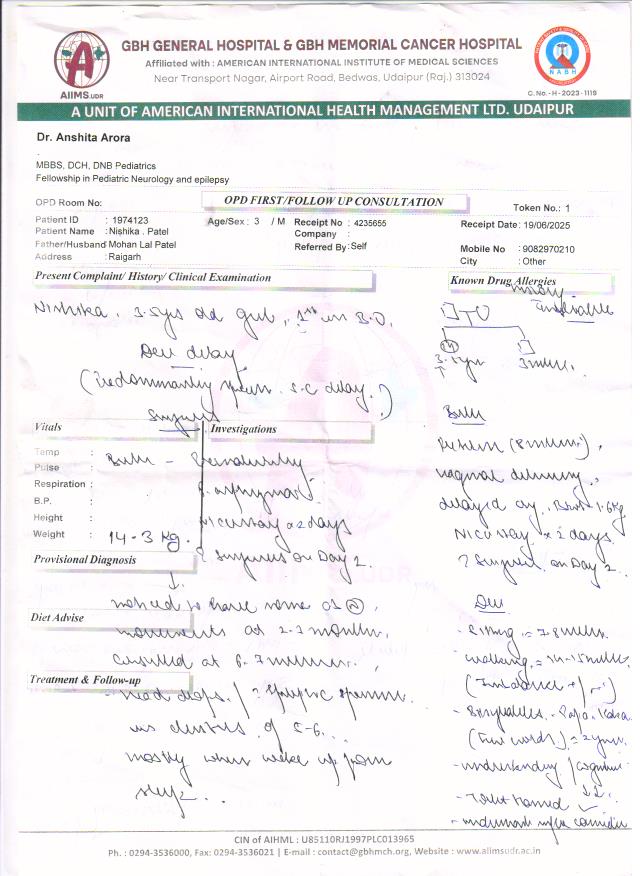 AIIMS.UDR
GBH GENERAL HOSPITAL & GBH MEMORIAL CANCER HOSPITAL
Affiliated with : AMERICAN INTERNATIONAL INSTITUTE OF MEDICAL SCIENCES
Near Transport Nagar, Airport Road, Bedwas, Udaipur (Raj.) 313024
NABH
C. No.- H - 2023 - 1119
A UNIT OF AMERICAN INTERNATIONAL HEALTH MANAGEMENT LTD. UDAIPUR
Dr. Anshita Arora
MBBS, DCH, DNB Pediatrics
Fellowship in Pediatric Neurology and epilepsy
OPD Room No:
OPD FIRST/FOLLOW UP CONSULTATION
Token No.: 1
Patient ID : 1974123
Age/Sex : 3 / M
Receipt No : 4235655
Receipt Date: 19/06/2025
Patient Name : Nishika . Patel
Company :
Father/Husband Mohan Lal Patel
Referred By : Self
Mobile No : 9082970210
Address : Raigarh
City : Other
Present Complaint/ History/ Clinical Examination
Known Drug Allergies
Nishika. 3.5yrs old girl, 1st in B.O.
Dev delay
(Predominantly speech delay.)
3.5yrs
Vitals
Investigations
Birth
Temp :
Birth -
Pulse :
Respiration :
vaginal delivery,
B.P. :
NICU stay x 2 days
delayed cry, B.wt 1.6kg
Height :
? Seizures on Day 2.
NICU stay x 2 days.
Weight : 14.3 kg.
? Seizures on Day 2.
Provisional Diagnosis
noticed to have some
Dev
Diet Advise
movements at 2-3 months,
- Sitting = 7-8 mths.
at 6-7 months.,
- walking = 14-15 mths
Treatment & Follow-up
(Imbalance +/-)
- Head drops / ? Epileptic spasms
- Bisyllables - Papa.
in clusters of 5-6...
(Few words) = 2 years.
mostly when wake up from
- understanding / cognition
sleep...
- Toilet trained ✓
CIN of AIHML : U85110RJ1997PLC013965
Ph. : 0294-3536000, Fax: 0294-3536021 | E-mail : contact@gbhmch.org, Website : www.aiimsudr.ac.in